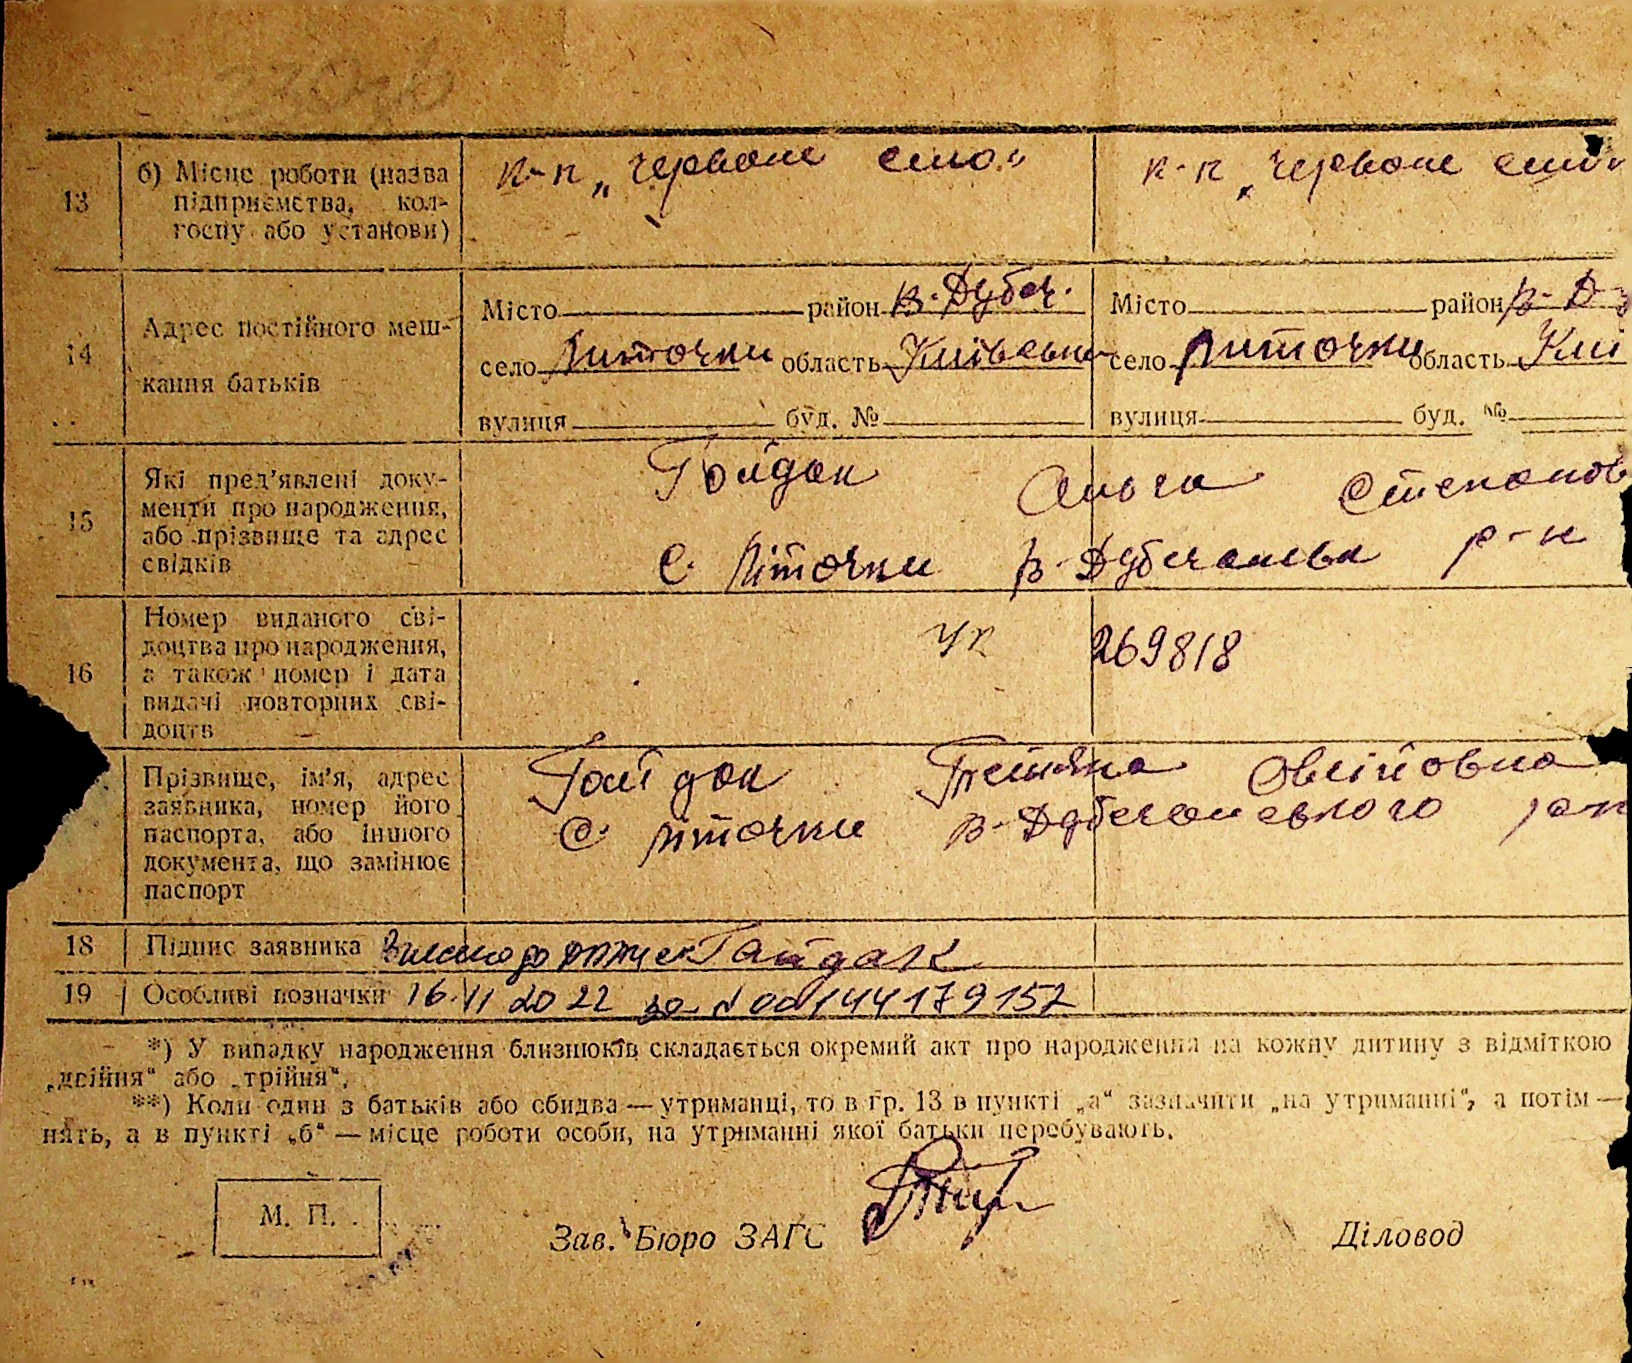 13 б) Місце роботи (назва підприємства, кол-
госпу або установи) к-п „Червоне село" к-п „Червоне село"
14 Адрес постійного меш-
кання батьків
Місто район В-Дубеч. Місто район В-Д
село Литочки область Київська село Литочки область Киї
вулиця буд. № вулиця буд. №
15 Які пред'явлені доку-
менти про народження,
або прізвище та адрес
свідків
Гайдак Ольга Степанов
с. Літочки В-Дубечанськ р-н
16 Номер виданого сві-
доцтва про народження,
а також номер і дата
видачі повторних сві-
доцтв
УК 269818
Прізвище, ім'я, адрес
заявника, номер його
паспорта, або іншого
документа, що замінює
паспорт
Гайдак Тетяна Овсіїовна
с. Літочки В-Дубечанського
18 Підпис заявника Гайдак
19 Особливі позначки 16.11 2022 00144179157
*) У випадку народження близнюків складається окремий акт про народження на кожну дитину з відміткою
„двійня" або „трійня".
**) Коли один з батьків або обидва — утриманці, то в гр. 13 в пункті „а" зазначити „на утриманні", а потім —
нять, а в пункті „б" — місце роботи особи, на утриманні якої батьки перебувають.
М. П.
Зав. Бюро ЗАГС Діловод